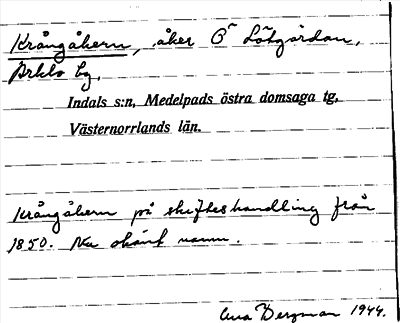 Krångåkern, åker Ö Lötgårdan,
by.
Indals s:n, Medelpads östra domsaga tg,
Västernorrlands län.
Krångåkern på skifteshandling från
1850. Nu okänt namn.
Bergman 1944.